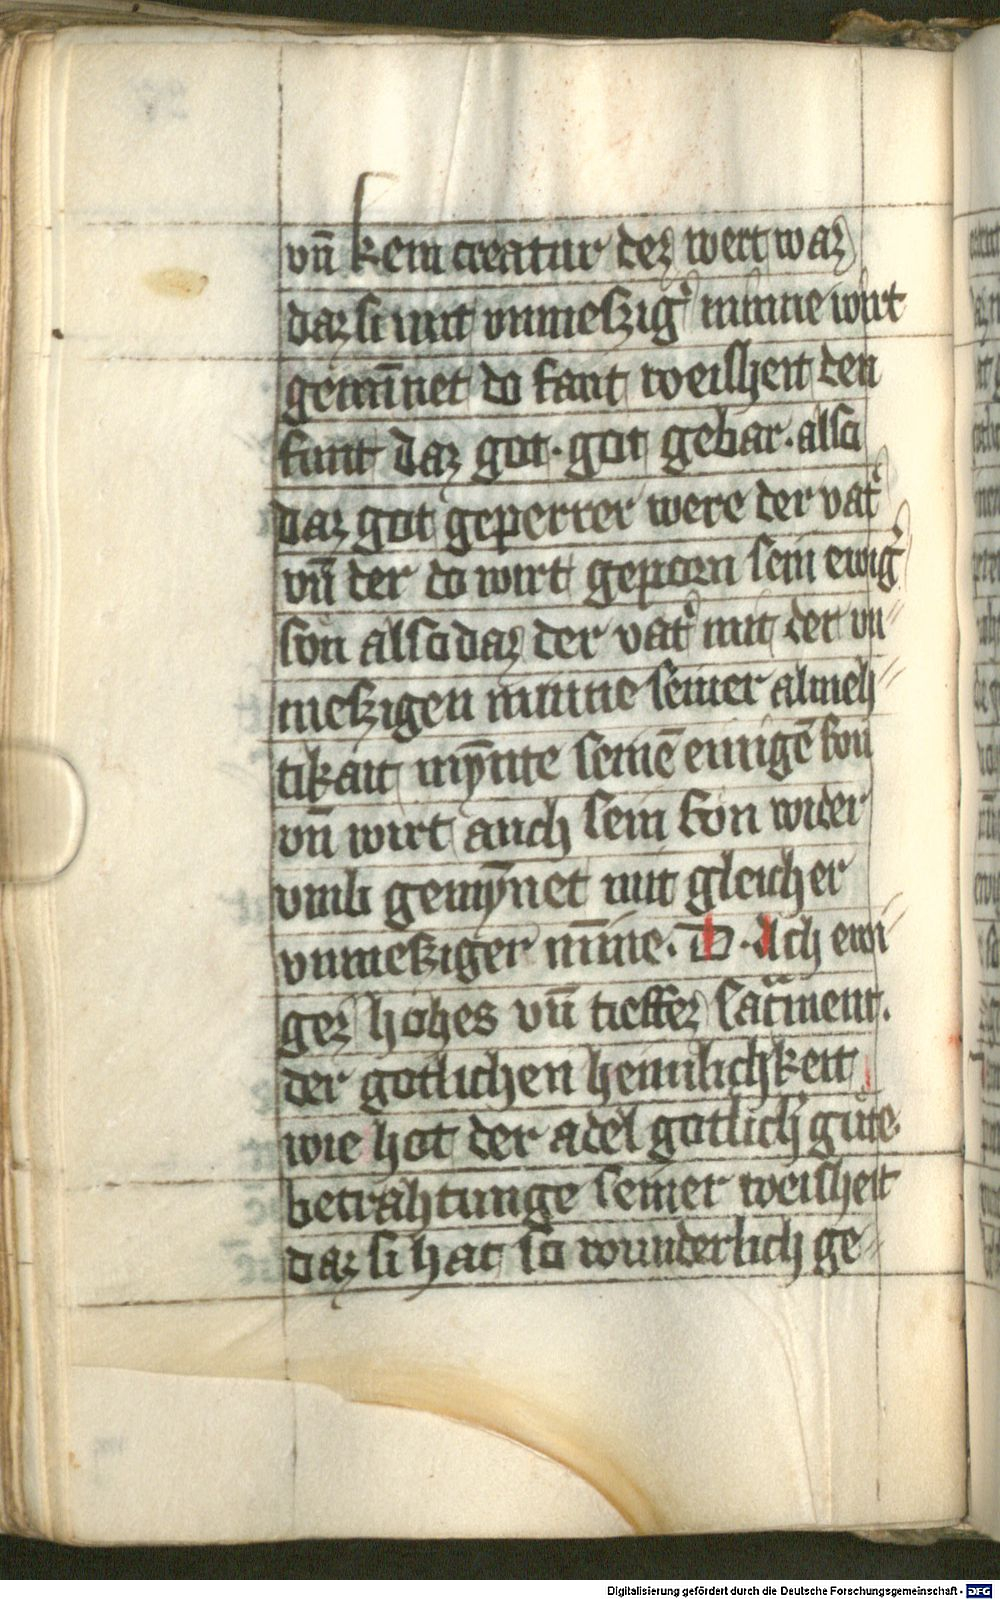 vn̄ kein creatur dez wert waz
daz si mit vnmeszig' minne wirt
gemīnet do fant weisheit den
funt daz got · got gebar · also
daz got geperrer were der vat'
vn̄ der do wirt geporn sein ewig'
son also daz der vat' mit der vn
meszigen minne seiner almeh
tikait mȳnte seinē einigē son
vn̄ wirt auch sein son wider
vmb gemȳnet mit gleicher
vnmesziger mīne · D · Ach ewi
gez hohes vn̄ tieffez sac̄ment .
der gotlichen heimlichkeit
wie hot der adel gotlich' gute
betrahtunge seiner weisheit
daz si hat so wunderlich ge
Digitalisierung gefördert durch die Deutsche Forschungsgemeinschaft - DFG